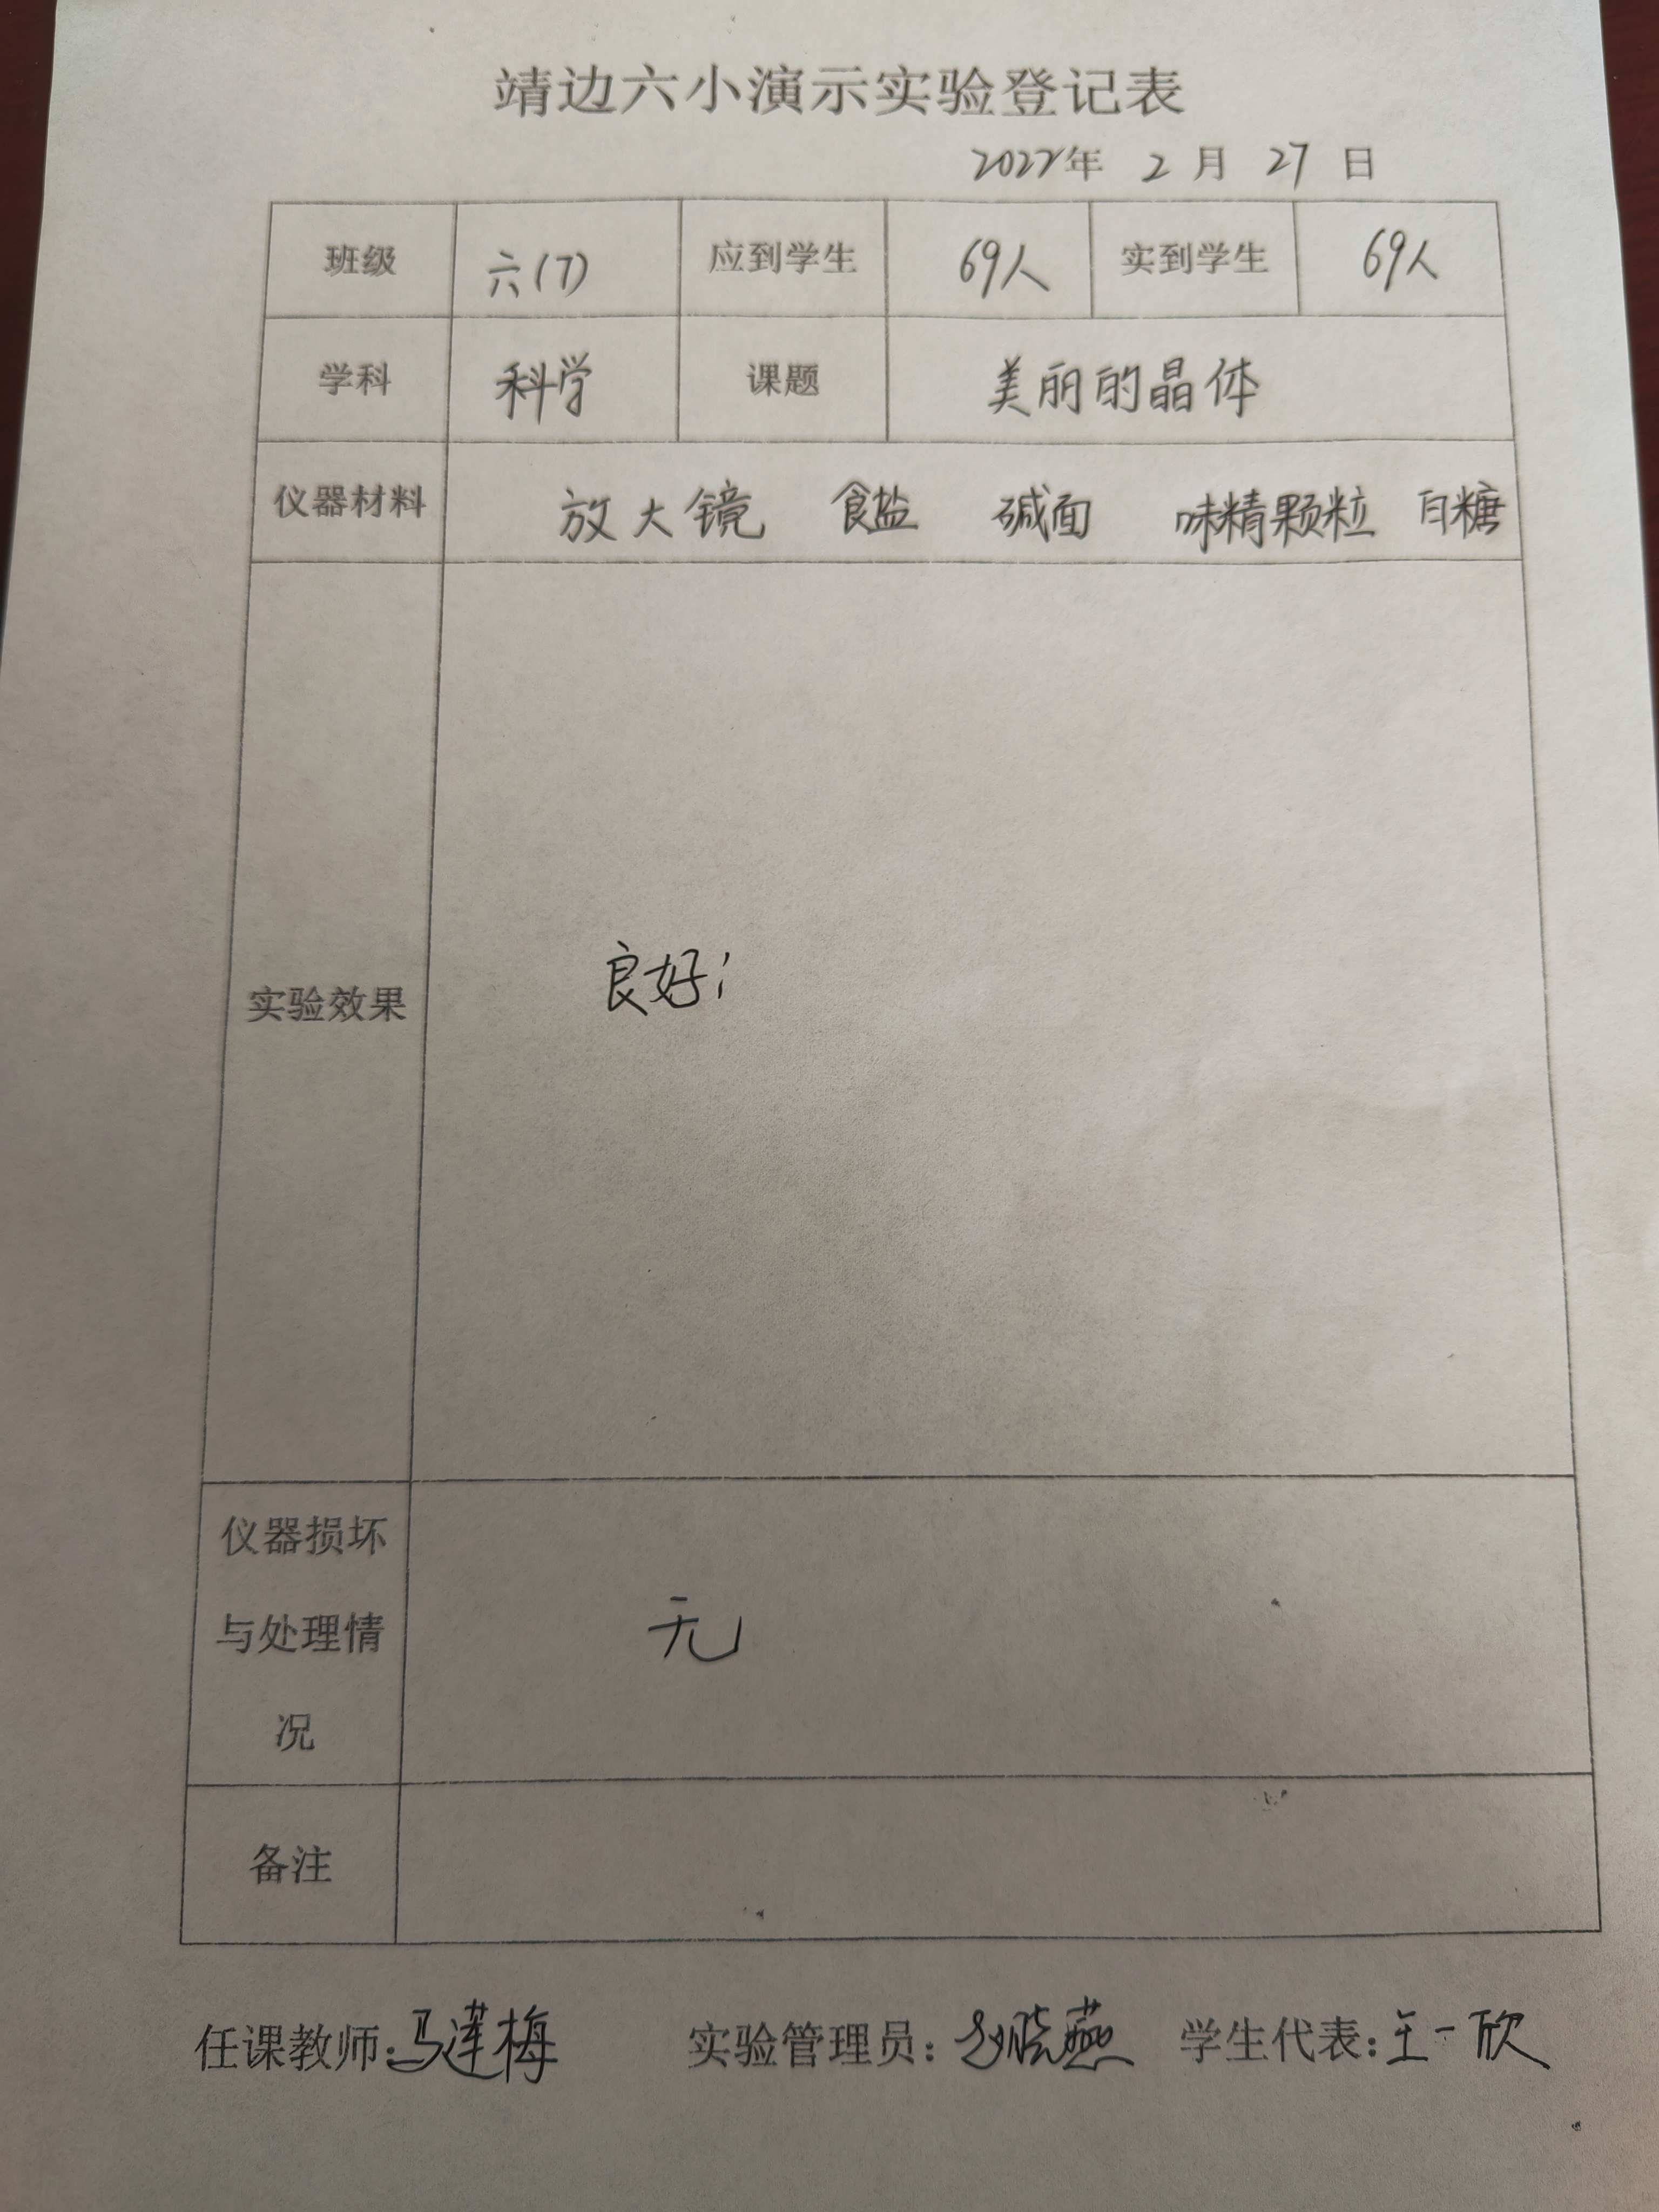 靖边六小演示实验登记表
2022年 2 月 27 日
班级 六(7) 应到学生 69人 实到学生 69人
学科 科学 课题 美丽的晶体
仪器材料 放大镜 食盐 碱面 味精颗粒 白糖
实验效果 良好;
仪器损坏
与处理情
况
无
备注
任课教师:马莲梅 实验管理员: 晓燕 学生代表:王一欣